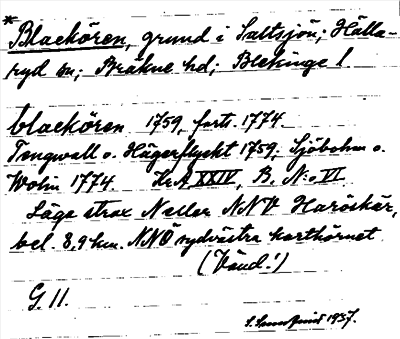 *
Blackören, grund i Saltsjön; Hälla-
ryd sn; Bräkne hd; Blekinge l.
blackören 1759, forts. 1774.
Tengwall o. Hägerflyckt 1759; Sjöbohm o.
Wolin 1774. KrA XXIV, B. N:o VI
Läge strax N eller NNV Haröskär,
bel. 8,9 km. NNÖ sydvästra karthörnet
(Vänd!)
G. 11.
1937.